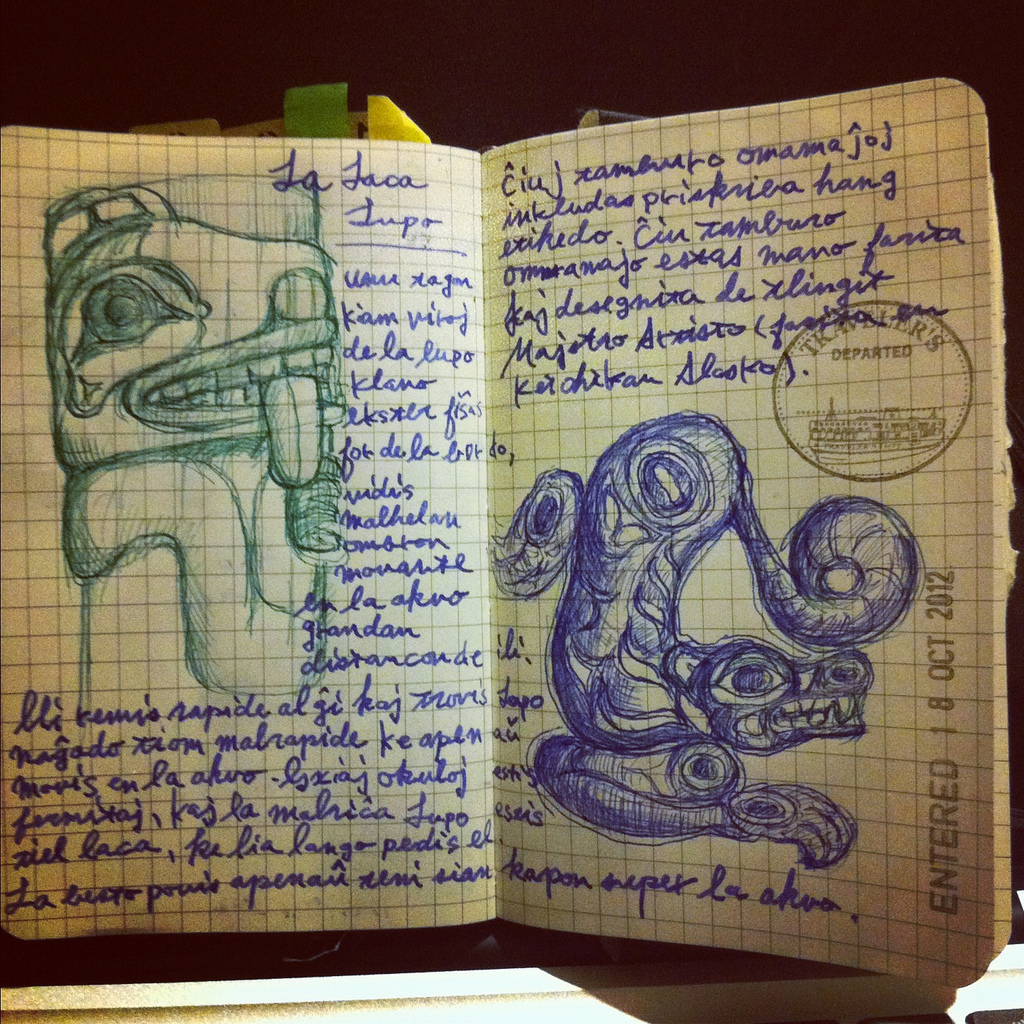 La Laca
Lupo
unu tagon
kiam viroj
de la lupo
klano
ekster fiŝas
for de la bordo,
vidis
malhelan
ombron
movante
en la akvo
grandan
distancon de ili.
Ili remis rapide al ĝi kaj trovis Lupo
naĝado tiom malrapide ke apenaŭ
movis en la akvo. Ĝiaj okuloj estis
fermitaj, kaj la malriĉa Lupo estis
tiel laca, ke lia lango pedis el.
La besto povis apenaŭ teni sian kapon super la akvo.
Ĉiuj tamburo omamaĵoj
inkludas priskriba hang
etikedo. Ĉiu tamburo
omramaĵo estas mano farita
kaj desegnita de tlingit
Majstro Artisto (farita en
Ketchikan Alasko).
TRAVELER'S
DEPARTED
ENTERED 18 OCT 2012